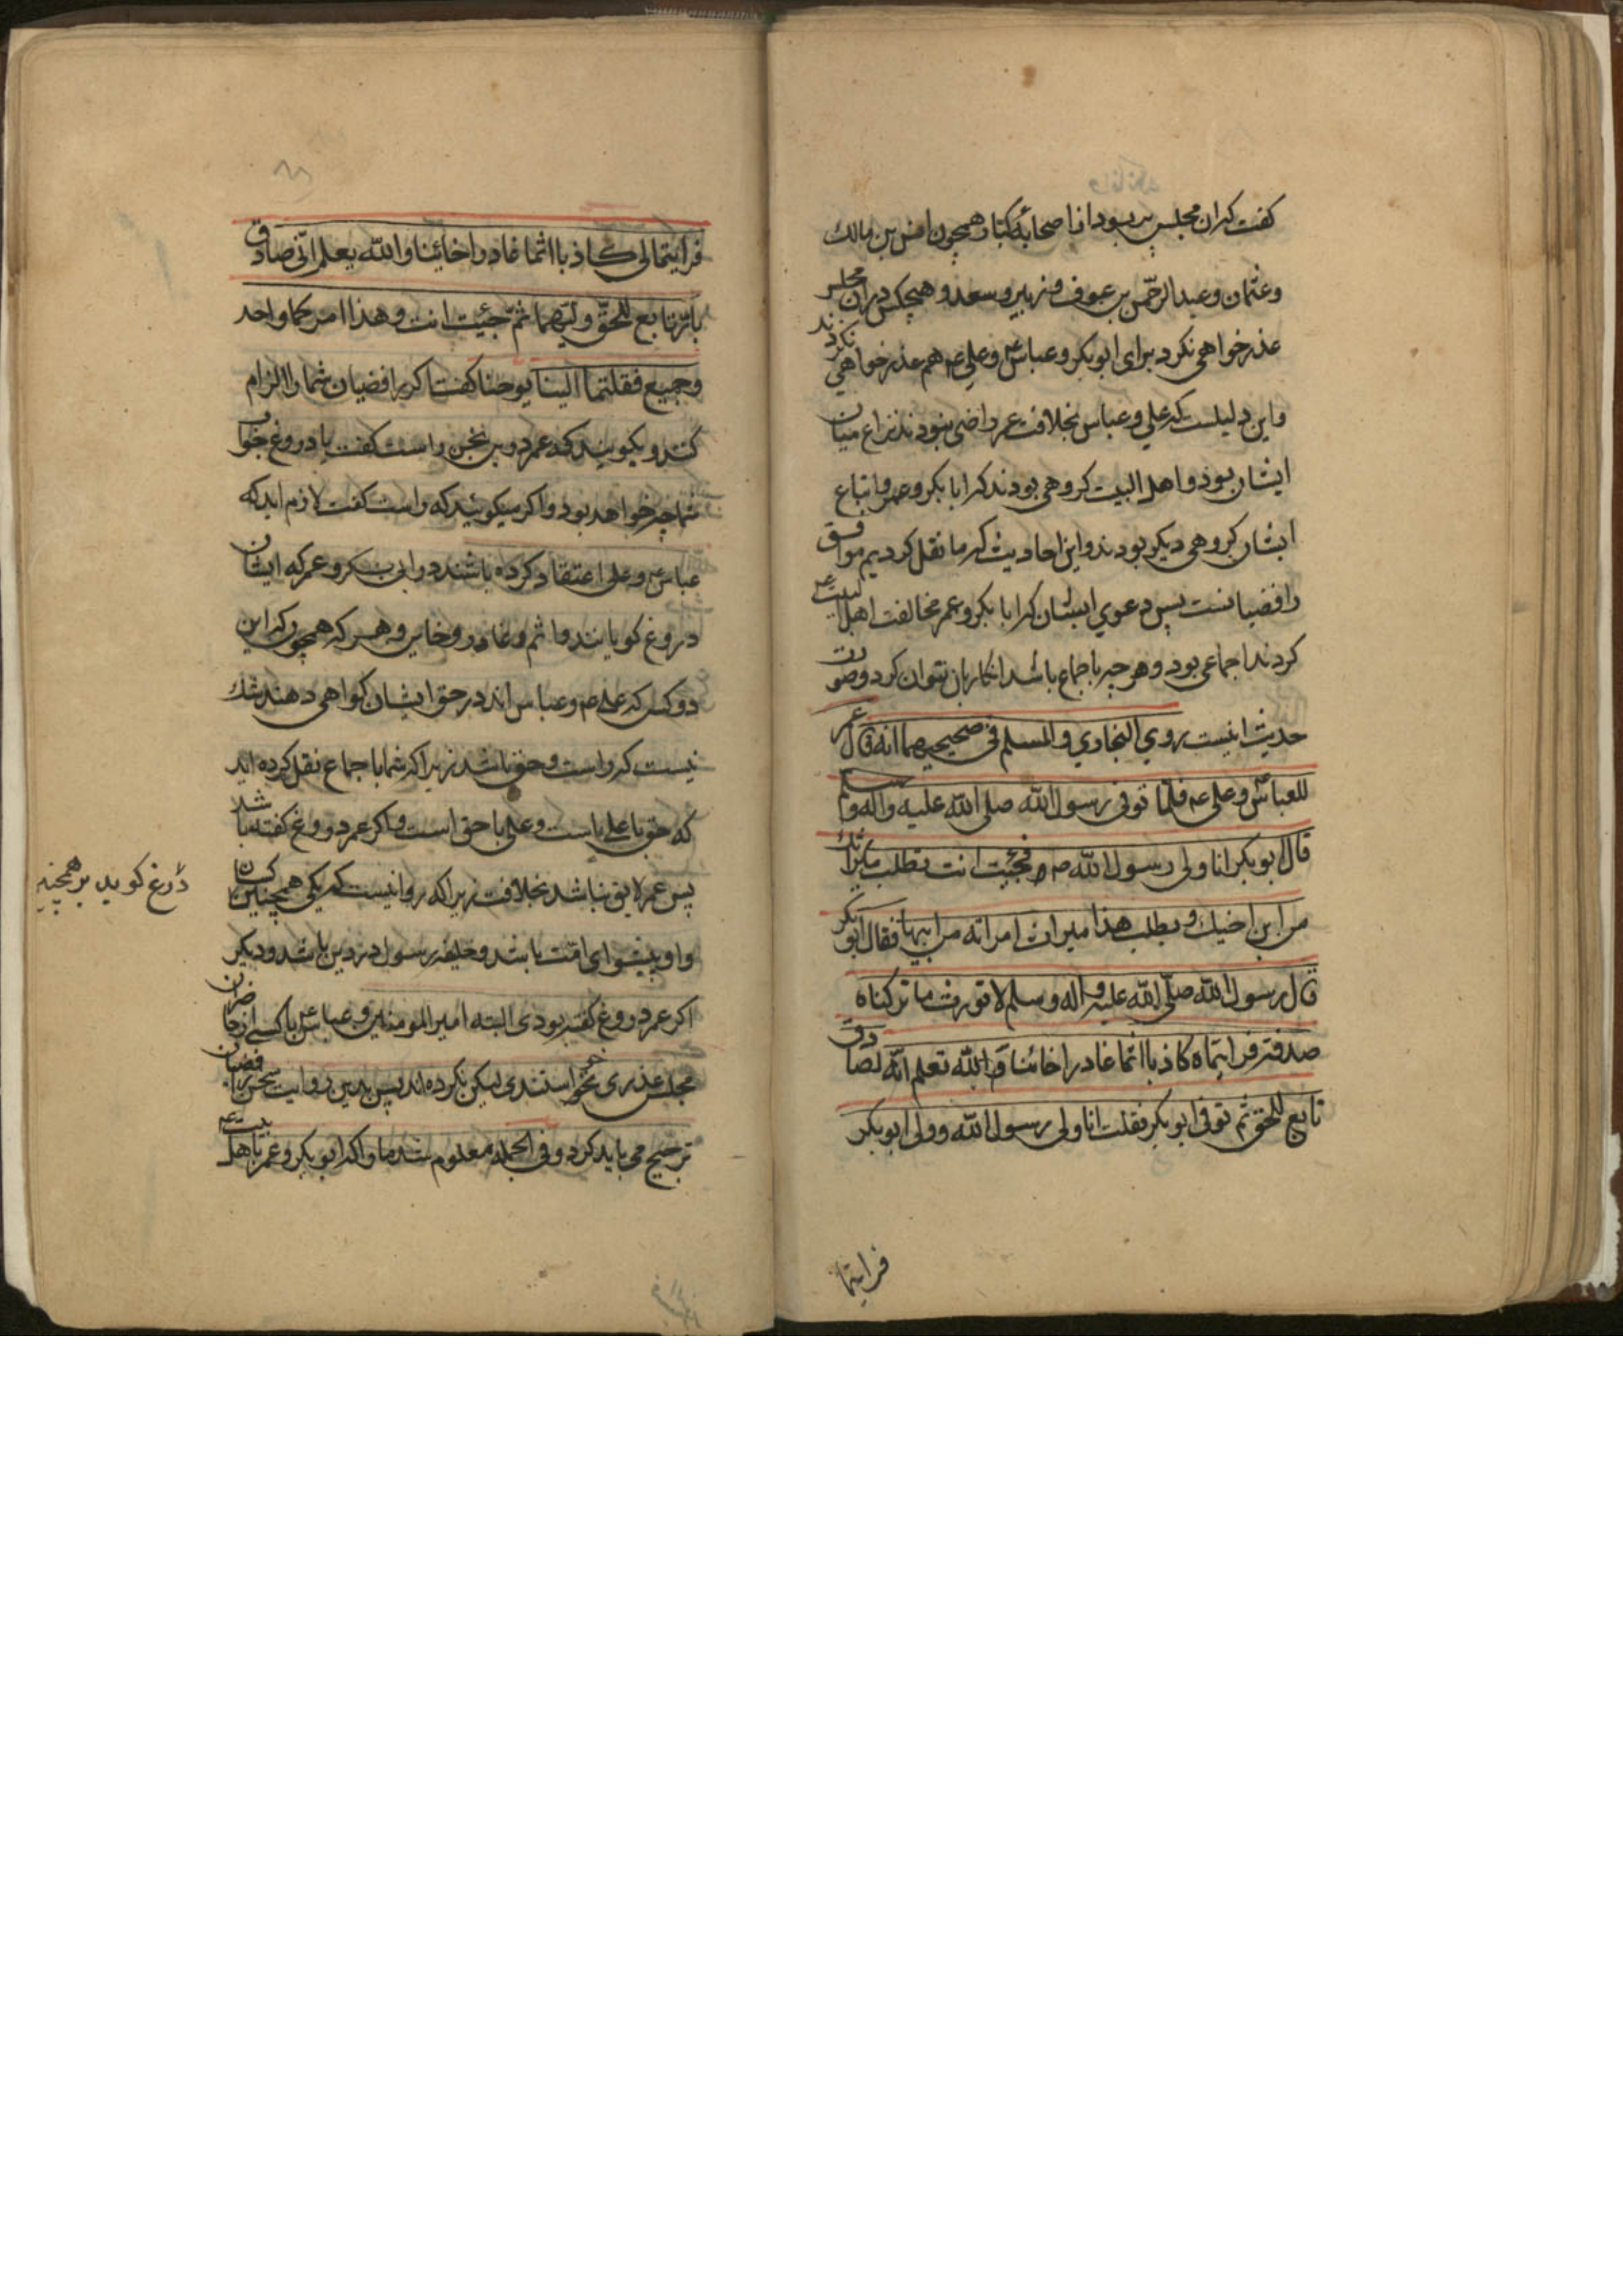 کفت که ان مجلس پر بود از اصحابهٔ کبار همچون انس بن مالك
وعثمان وعبد الرحمن بن عوف و زبیر و سعد و هیچکس در ان مجلس
عذر خواهی نکرد برای ابو بکر و عباس و علی عم هم عذر خواهی نکردند
واین دلیلست که علی و عباس بخلافت عمر راضی نبودند نزاع میان
ایشان بود و اهل البیت کروهی بودند که ابا بکر و عمر و اتباع
ایشان کروهی دیکر بودند و این احادیث که ما نقل کردیم موافق
رافضیانست پس دعوی ایشان که ابا بکر و عمر مخالفت اهل البیت عم
کردند اجماعی بود و هر چه باجماع باشد انکار بان نتوان کرد و صورت
حدیث اینست روي البخاري والمسلم في صحیحیهما انه قال عمر
للعباس وعلی عم فلمّا توفی رسول الله صلی الله علیه واله وسلم
قال ابو بکر انا ولی رسول الله ص فجئت انت تطلب میراثك
من ابن اخیك و یطلب هذا میراث امراته من ابیها فقال ابو بکر
قال رسول الله صلّی الله علیه و اله وسلم لا نورث ما ترکناه
صدقة فرایتماه کاذبا اثما غادرا خائنا و الله تعلم انّه لصادق
تابع للحق ثم توفی ابو بکر فقلت انا ولی رسول الله وولی ابو بکر
فرایتما
فرایتمانی کاذبا اثما غادرا خائینا والله یعلم انّی صادق
بارّ تابع للحقّ ولیتهما ثمّ جئیت انت وهذا امرکما واحد
وجمیع فقلتما الینا یوحنا کفت اکر رافضیان شما را الزام
کنند و بکویند که عمر در این سخن راست کفت یا دروغ جواب
شما چه خواهد بود و اکر میکوئید که راست کفت لازم اید که
عباس و علی اعتقاد کرده باشند در ابی بکر و عمر که ایشان
دروغ کویانند و اثم و غادر و خاین و هر که همچون که این
دو کس که علی عم و عباس اند در حق ایشان کواهی دهند شك
نیست که راست و حق باشد زیرا که شما باجماع نقل کرده اید
که حق با علی است و علی با حق است و اکر عمر دروغ کفته باشد
پس عمر لایق نباشد بخلافت زیرا که روا نیست که یکی همچنین کسان
دروغ کوید بر همچنین
و او پیشوای امّت باشد و خلیفه رسول در دین باشد و دیکر
اکر عمر دروغ کفته بودی البته امیر المومنین و عباس یا کسی از حاضران
مجلس عذری میخواستندی لیکن نکرده اند پس بدین روایت سخن رافضیان
ترجیح می باید کرد و فی الجمله معلوم شد ما را که ابو بکر و عمر با اهل بیت عم